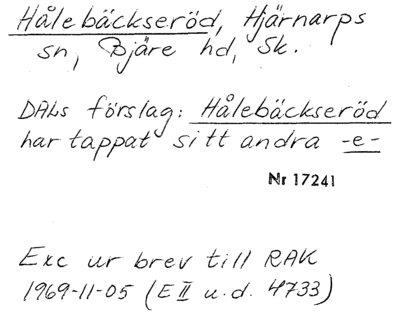 Hålebäckseröd, Hjärnarps
sn, Bjäre hd, Sk.
DALs förslag: Hålebäckseröd
har tappat sitt andra -e-
Nr 17241
Exc ur brev till RAK
1969-11-05 (E II u.d. 4733)